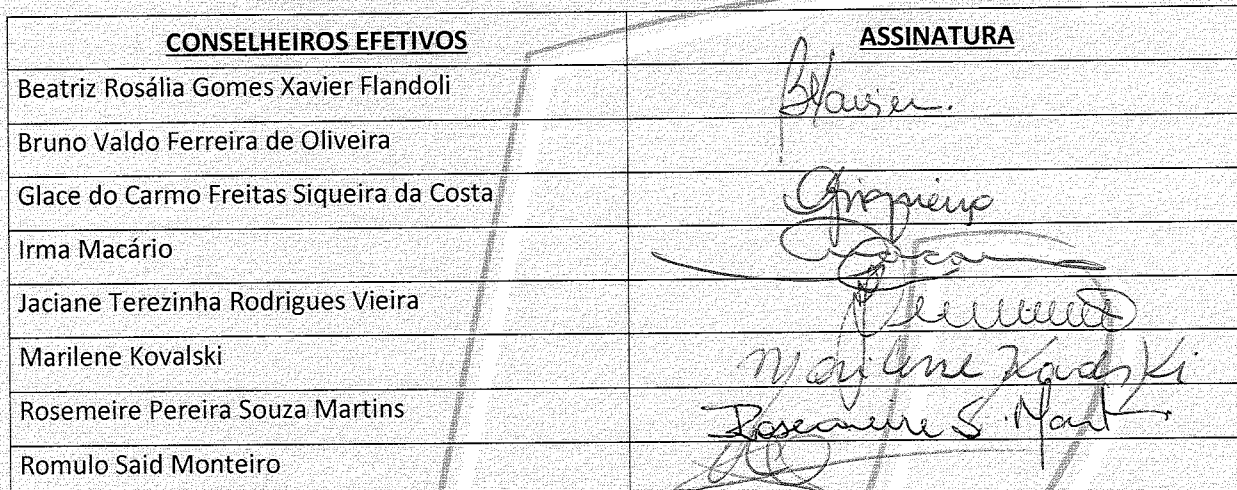 CONSELHEIROS EFETIVOS ASSINATURA
Beatriz Rosália Gomes Xavier Flandoli BXavier.
Bruno Valdo Ferreira de Oliveira
Glace do Carmo Freitas Siqueira da Costa
Irma Macário
Jaciane Terezinha Rodrigues Vieira
Marilene Kovalski Marilene Kovalski
Rosemeire Pereira Souza Martins Rosemeire S. Mart
Romulo Said Monteiro